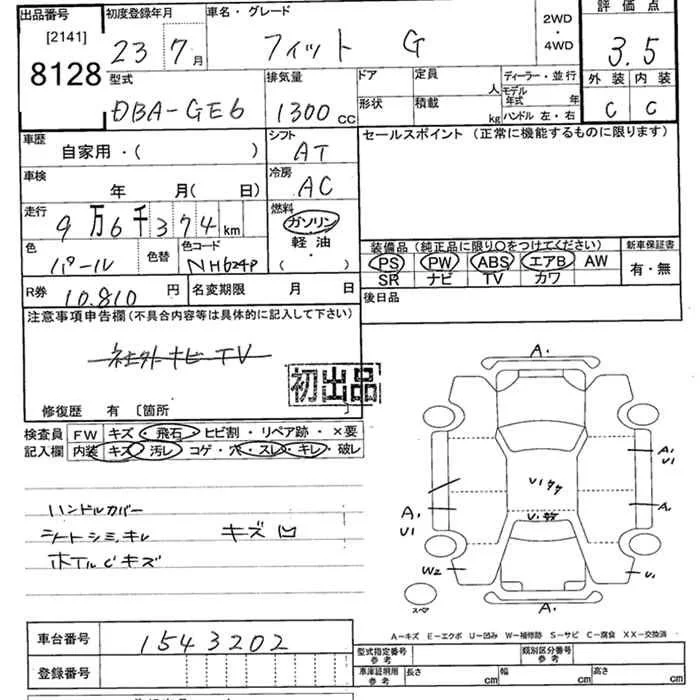 出品番号 初度登録年月 車名・グレード 2WD・4WD 評価点
[2141]
8128 23 7月 フィット G 3.5
型式 排気量 ドア 定員 人 ディーラー・並行 外装 内装
モデル年式 年
DBA-GE6 1300cc 形状 積載 kg ハンドル 左・右 C C
車歴 シフト セールスポイント(正常に機能するものに限ります)
自家用・( ) AT
車検 冷房
年 月( 日) AC
走行 燃料
9万6千374km ガソリン
軽油
( ・ )
色 色替 色コード
パール NH624P
装備品(純正品に限り○をつけてください) 新車保証書
PS PW ABS エアB AW 有・無
SR ナビ TV カワ
R券 10.810円 名変期限 月 日 後日品
注意事項申告欄(不具合内容等は具体的に記入して下さい)
社外ナビTV
初出品
修復歴 有 [箇所 ]
検査員 FW キズ・飛石・ヒビ割・リペア跡・×要
記入欄 内装 キズ・汚レ・コゲ・穴・スレ・キレ・破レ
ハンドルカバー
シートシミ、キレ キズ凹
ホイルCキズ
A.
A.
U1
A.
A.
U1
W2
U.
スペア
A.
A-キズ E-エクボ U-凹み W-補修跡 S-サビ C-腐食 XX-交換済
車台番号 1543202
登録番号
型式指定番号 参考 類別区分番号 参考
車庫証明用 参考 長さ cm 幅 cm 高さ cm